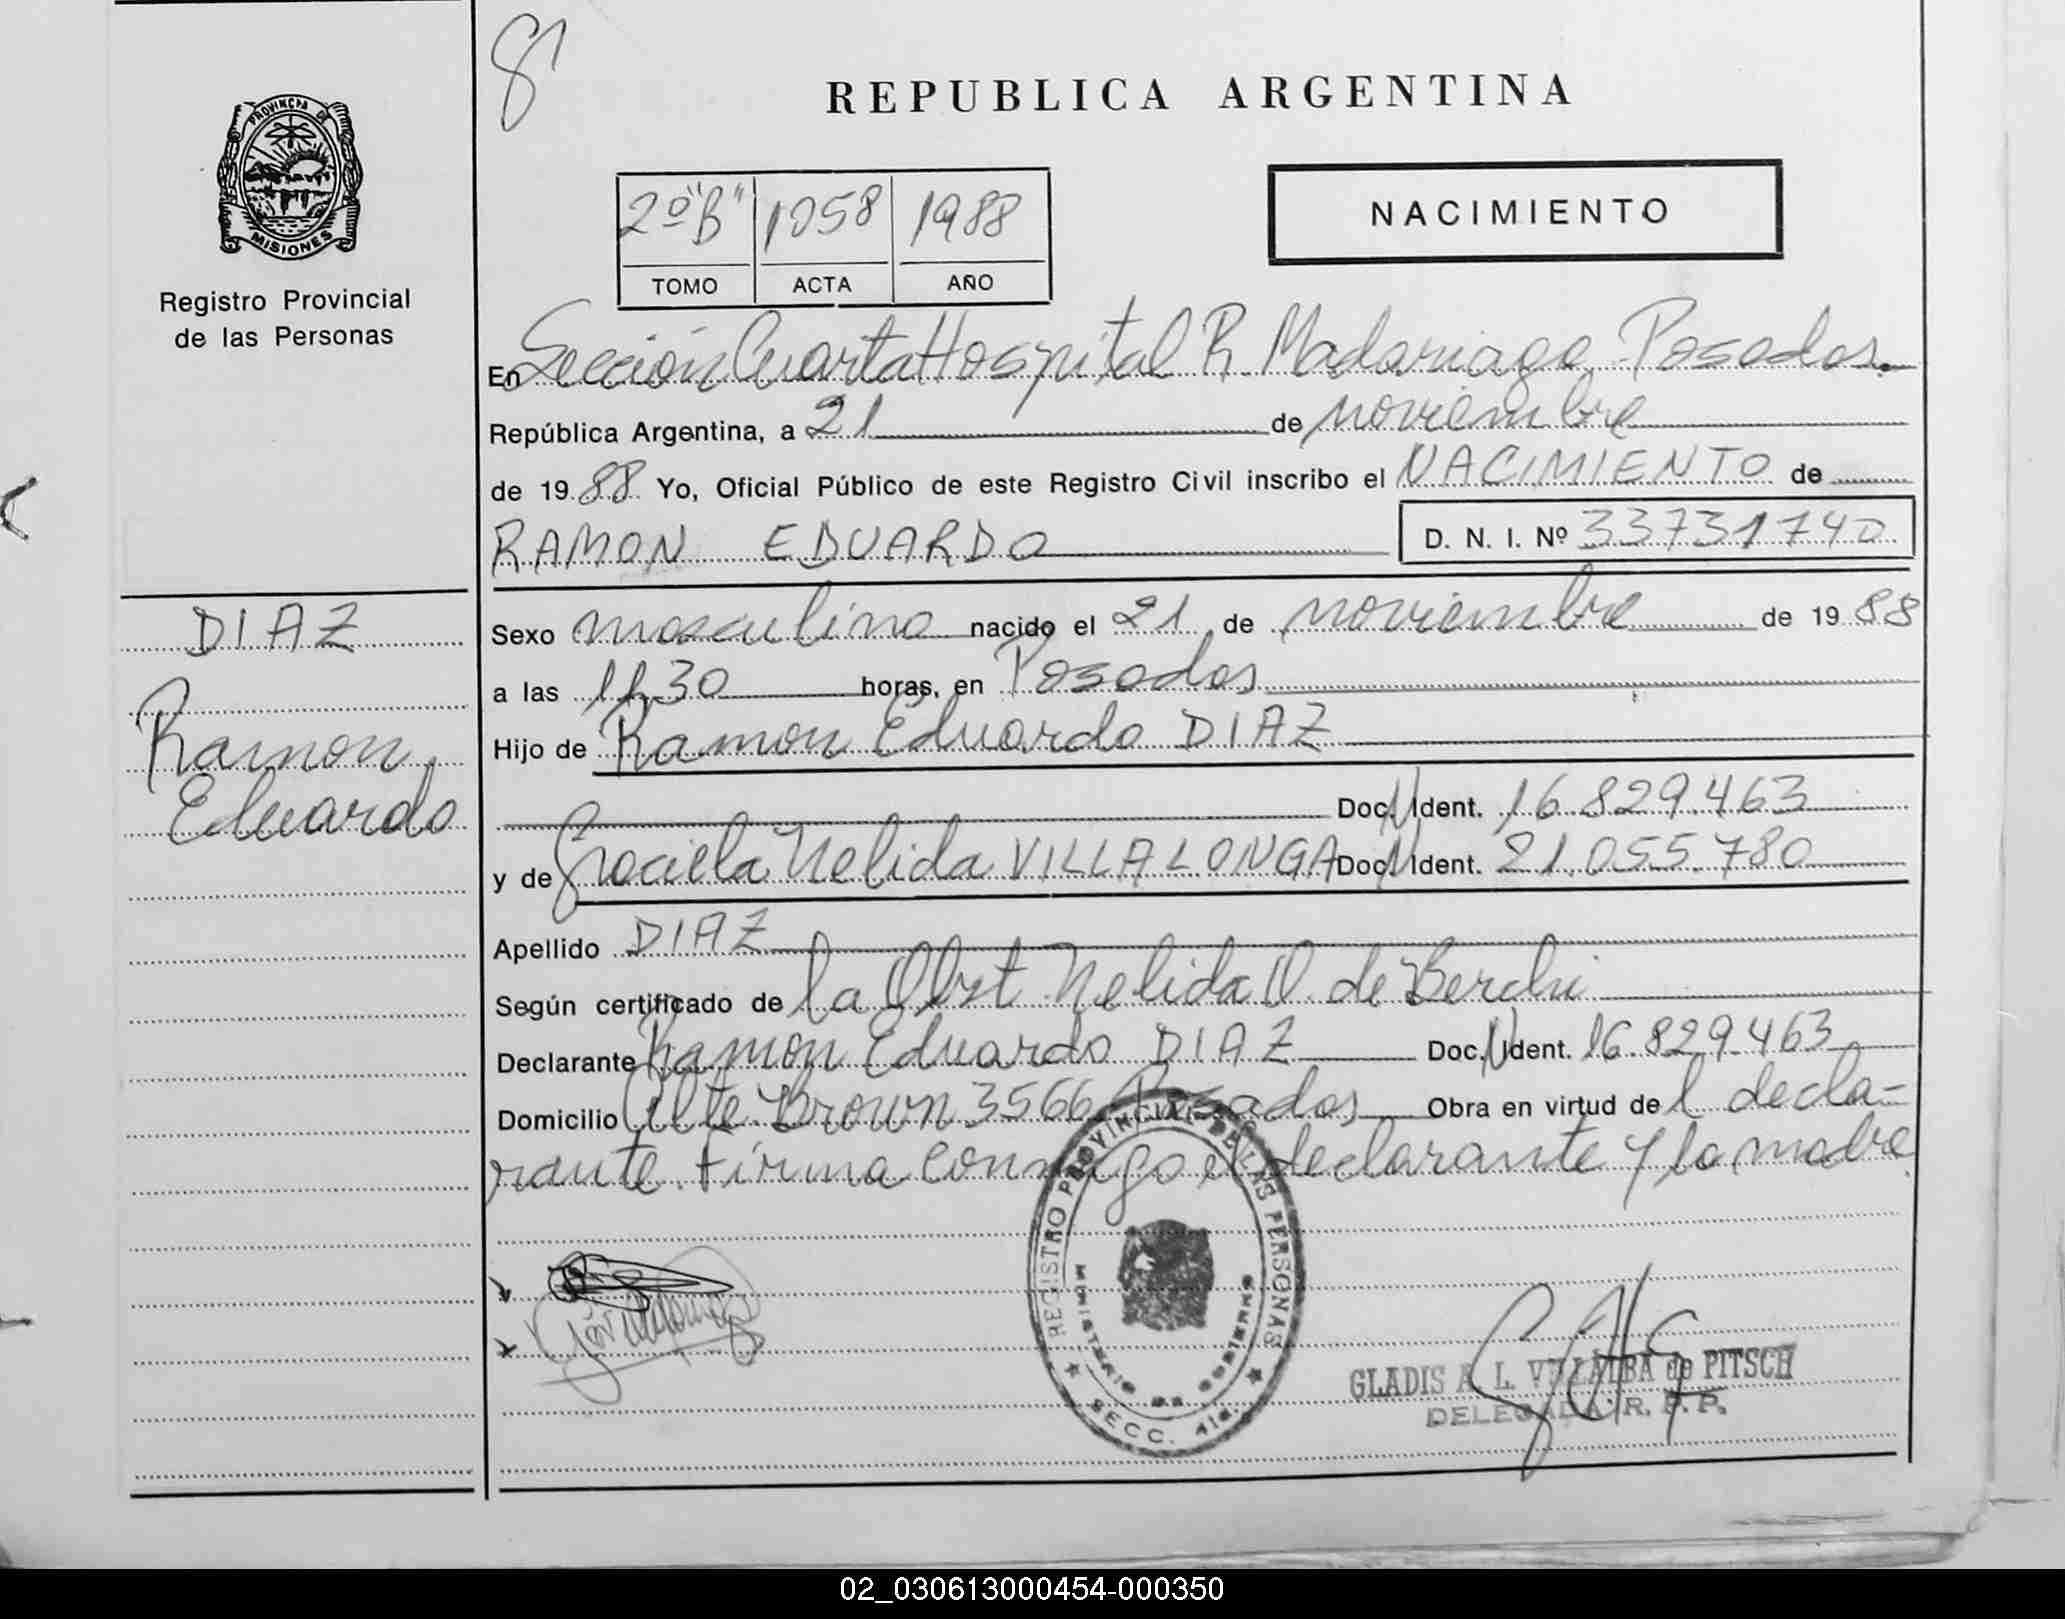 8
REPUBLICA ARGENTINA
PROVINCIA DE
MISIONES
Registro Provincial
de las Personas
2º "B" 1058 1988
TOMO ACTA AÑO
NACIMIENTO
En Sección Cuarta Hospital R. Madariaga Posadas.
República Argentina, a 21 de noviembre
de 1988 Yo, Oficial Público de este Registro Civil inscribo el NACIMIENTO de
RAMON EDUARDO D. N. I. Nº 33731740
DIAZ
Ramon
Eduardo
Sexo masculino nacido el 21 de noviembre de 1988
a las 11,30 horas, en Posadas
Hijo de Ramon Eduardo DIAZ
Doc. N Ident. 16.829.463
y de Graciela Nelida VILLALONGA Doc. N Ident. 21.055.780
Apellido DIAZ
Según certificado de la Obst. Nelida O. de Berchi
Declarante Ramon Eduardo DIAZ Doc. N Ident. 16.829.463
Domicilio Alte. Brown 3566 Posadas Obra en virtud de l decla-
rante. Firma conmigo el declarante y la madre
REGISTRO PROVINCIAL DE LAS PERSONAS
MINISTERIO DE GOBIERNO
SECC. 4ta.
GLADIS A. L. VILLALBA de PITSCH
DELEGADA R. P. P.
02_030613000454-000350